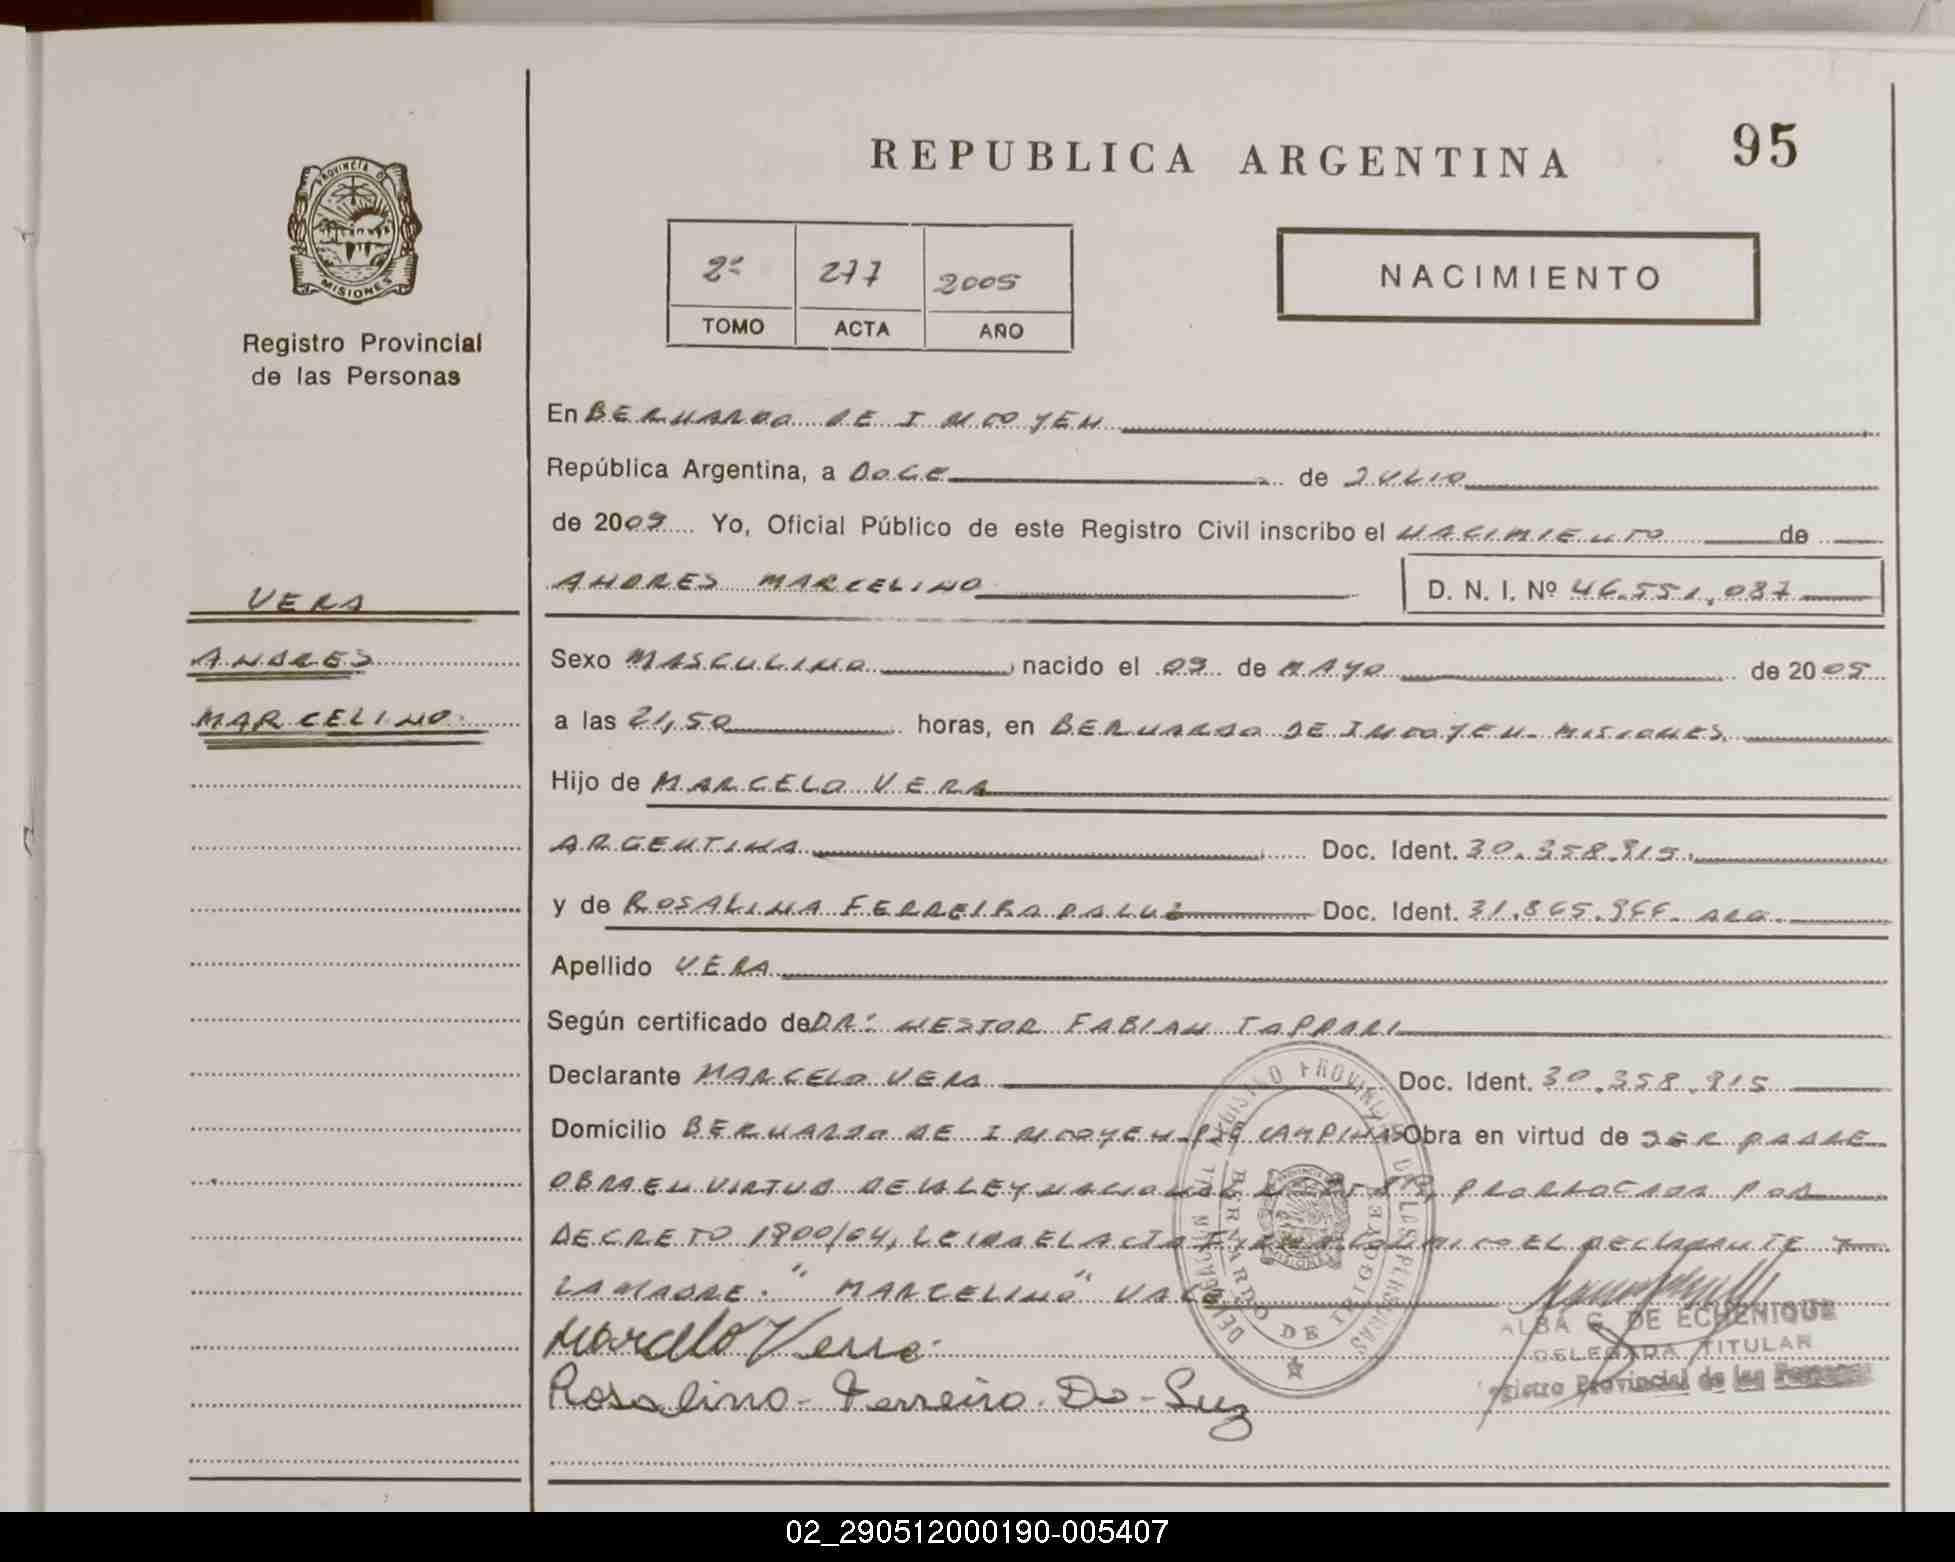 REPUBLICA ARGENTINA
95
PROVINCIA DE
MISIONES
Registro Provincial
de las Personas
2º 277 2005
TOMO ACTA AÑO
NACIMIENTO
En BERNARDO DE IRIGOYEN
República Argentina, a DOCE de JULIO
de 2005 Yo, Oficial Público de este Registro Civil inscribo el NACIMIENTO de
ANDRES MARCELINO D. N. I. Nº 46.551.087
VERA
ANDRES
MARCELINO
Sexo MASCULINO nacido el 09 de MAYO de 2005
a las 21,50 horas, en BERNARDO DE IRIGOYEN-MISIONES
Hijo de MARCELO VERA
ARGENTINA Doc. Ident. 30.358.915
y de ROSALINA FERREIRA DA LUZ Doc. Ident. 31.865.966 ARG.
Apellido VERA
Según certificado de DR: NESTOR FABIAN
Declarante MARCELO VERA Doc. Ident. 30.358.915
Domicilio BERNARDO DE IRIGOYEN CAMPINAS Obra en virtud de SER PADRE
OBRA EN VIRTUD DE LA LEY NACIONAL PRORROGADA POR
DECRETO 1900/04, LEIDA EL ACTA FIRMA CONMIGO EL DECLARANTE Y
LA MADRE. "MARCELINO" VALE
Marcelo Vera
Rosalina Ferreira Da Luz
REGISTRO PROVINCIAL DE LAS PERSONAS
BERNARDO DE IRIGOYEN
ALBA G. DE ECHENIQUE
DELEGADA TITULAR
Registro Provincial de las Personas
02_290512000190-005407